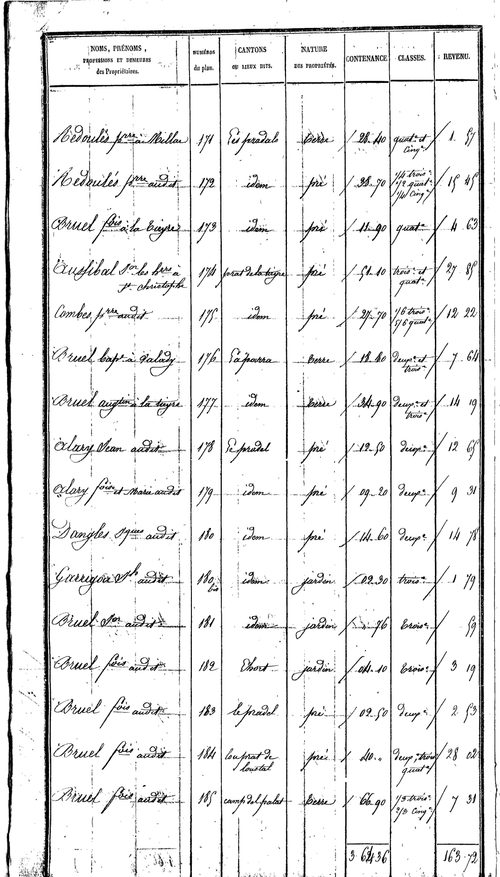 NOMS, PRÉNOMS, PROFESSIONS ET DEMEURES des Propriétaires. NUMÉROS du plan. CANTONS OU LIEUX DITS. NATURE DES PROPRIÉTÉS. CONTENANCE. CLASSES. REVENU.
Rédoulés prre à Millac 171 Les pradals Terre 28.40 quate et cinqe 1 57
Rédoulés prre audit 172 idem pré 38.70 1/4 trois 1/2 quate 1/4 cinqe 15 45
Bruel fois à la tuyre 173 idem pré 11.90 quate 4 63
174 prat de la tuyre pré 51.10 trois et quate 27 85
Combes prre audit 175 idem pré 27.70 1/6 trois 5/6 quate 12 22
Bruel bapte à 176 Terre 18.80 deuxe et trois 7 64
Bruel augtin à la tuyre 177 idem Terre 34.90 deuxe et trois 14 19
Alary Jean audit 178 Le pradel pré 12.50 deuxe 12 65
Alary fois et Marie audit 179 idem pré 09.20 deuxe 9 31
Dangles Jques audit 180 idem pré 14.60 deuxe 14 78
Garrigou audit 180 bis idem jardin 02.30 trois 1 79
Bruel audit 181 idem jardin " 76 trois 59
Bruel fois audit 182 L'hort jardin 04.10 trois 3 19
Bruel fois audit 183 le pradel pré 02.50 deuxe 2 53
Bruel fois audit 184 Lou prat de loustal pré 40 " deuxe, trois quate 28 02
Bruel fois audit 185 camp del palat Terre 66.90 1/3 trois 2/3 cinqe 7 31
3 64 36 163.72